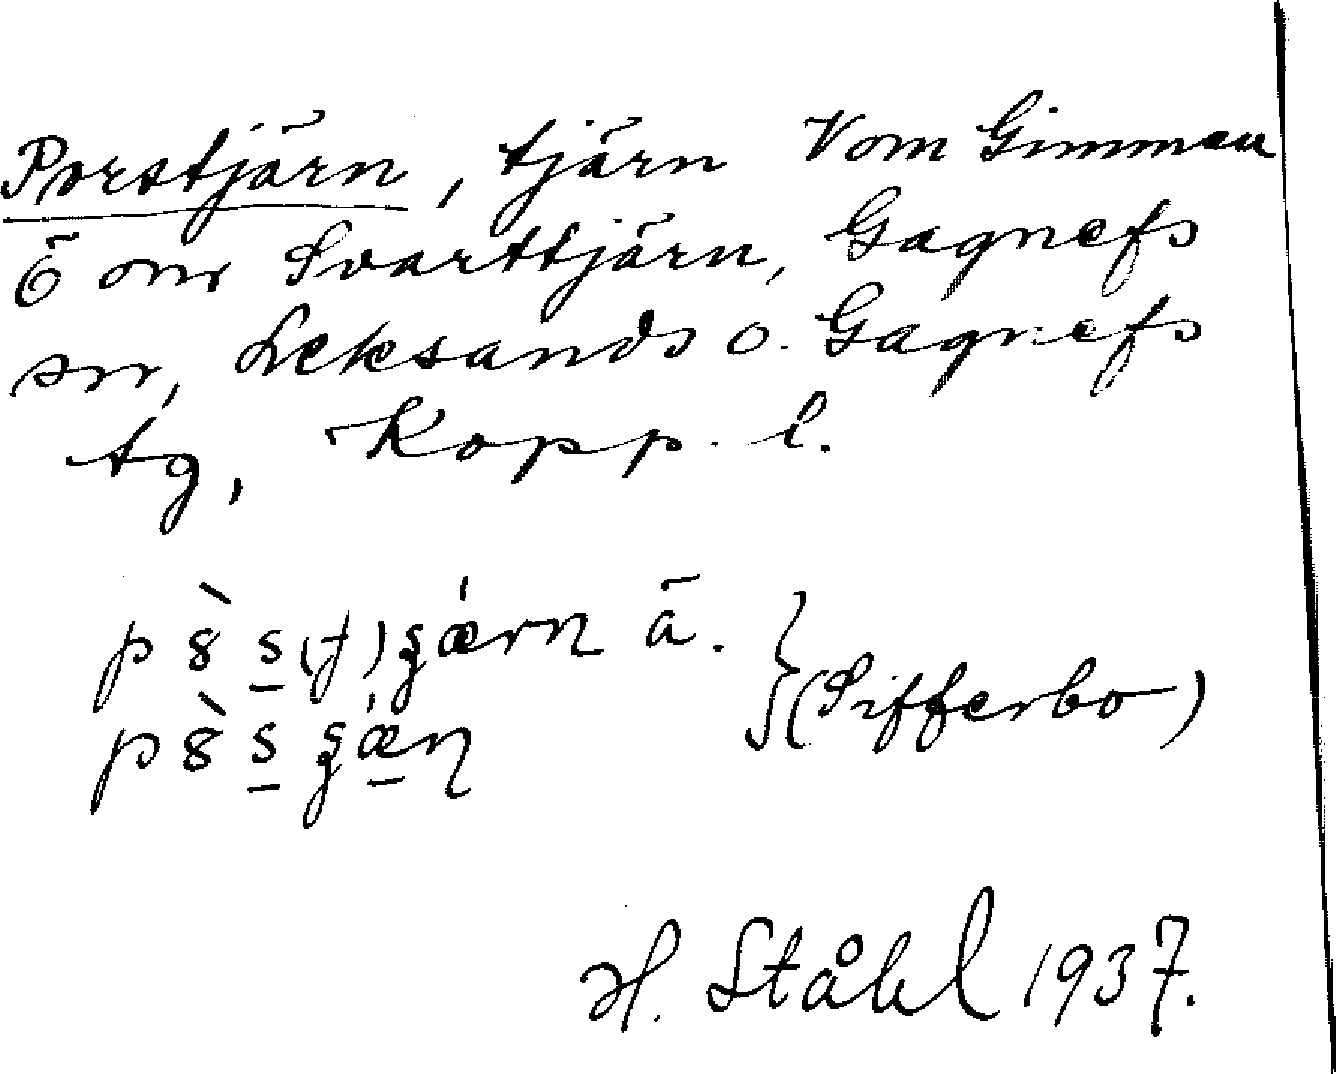 Porstjärn, tjärn V om Gimmen
Ö om Svarttjärn, Gagnefs
sn, Leksands o. Gagnefs
tg, Kopp. l.
ä. (Sifferbo)
H. Ståhl 1937.